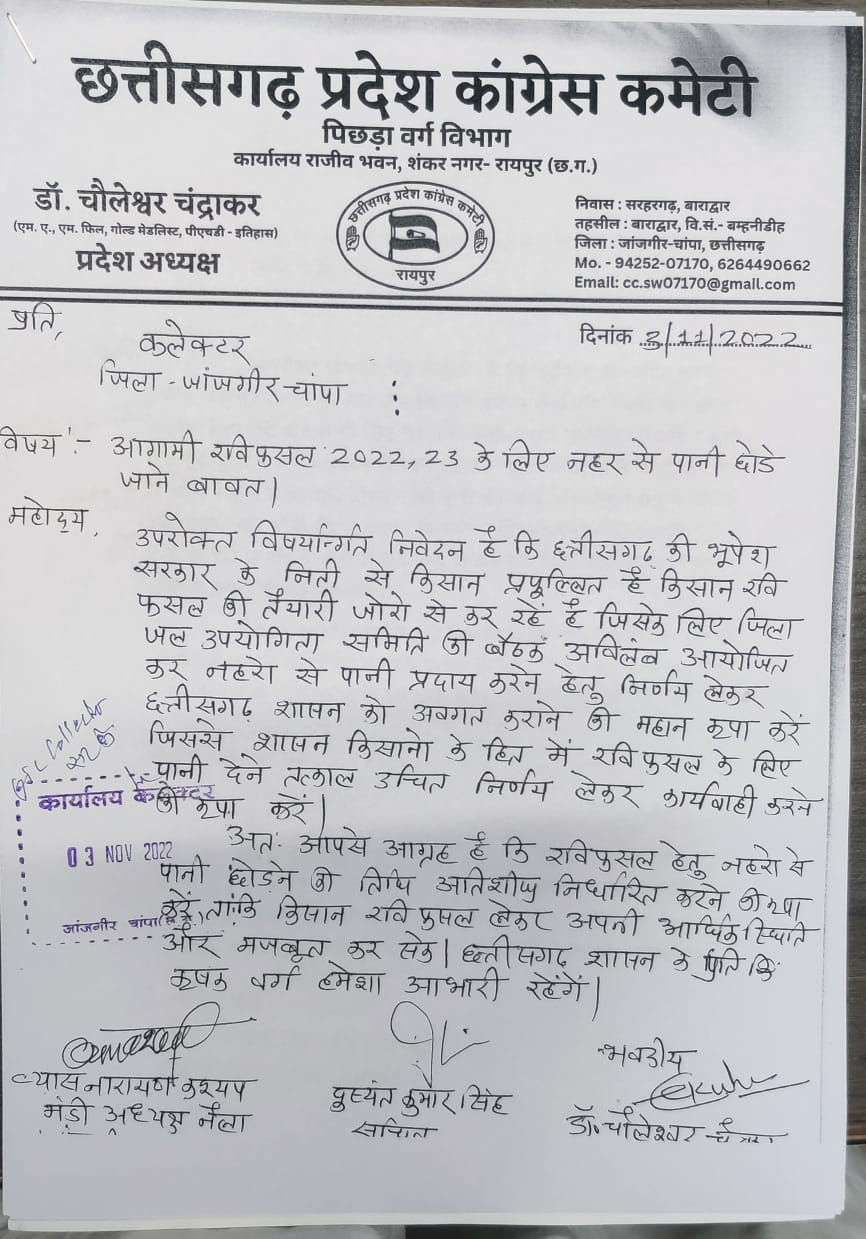 छत्तीसगढ़ प्रदेश कांग्रेस कमेटी
पिछड़ा वर्ग विभाग
कार्यालय राजीव भवन, शंकर नगर- रायपुर (छ.ग.)
डॉ. चौलेश्वर चंद्राकर
(एम. ए., एम. फिल, गोल्ड मेडलिस्ट, पीएचडी - इतिहास)
प्रदेश अध्यक्ष
छत्तीसगढ़ प्रदेश कांग्रेस कमेटी
रायपुर
निवास : सरहरगढ़, बाराद्वार
तहसील : बाराद्वार, वि.सं.- बम्हनीडीह
जिला : जांजगीर-चांपा, छत्तीसगढ़
Mo. - 94252-07170, 6264490662
Email: cc.sw07170@gmail.com
प्रति,
दिनांक 3/11/2022
कलेक्टर
जिला - जांजगीर-चांपा :
विषय :- आगामी रवि फसल 2022,23 के लिए नहर से पानी छोडे
जाने बावत।
महोदय,
उपरोक्त विषयार्न्गत निवेदन है कि छत्तीसगढ़ की भूपेश
सरकार के निती से किसान प्रफुल्लित है किसान रवि
फसल की तैयारी जोरो से कर रहें है जिसके लिए जिला
जल उपयोगिता समिति की बैठक अविलंब आयोजित
कर नहरो से पानी प्रदाय करने हेतु निर्णय लेकर
छत्तीसगढ़ शासन को अवगत कराने की महान कृपा करें
जिससे शासन किसानो के हित में रवि फसल के लिए
पानी देने तत्काल उचित निर्णय लेकर कार्यवाही करने
की कृपा करें।
अतः आपसे आग्रह है कि रवि फसल हेतु नहरो से
पानी छोडने की तिथि अतिशीघ्र निर्धारित करने की कृपा
करें, ताकि किसान रवि फसल लेकर अपनी आर्थिक स्थिति
और मजबूत कर सके। छत्तीसगढ़ शासन के प्रति
कृषक वर्ग हमेशा आभारी रहेंगें।
कार्यालय कलेक्टर
03 NOV 2022
जांजगीर चांपा
व्यास नारायण कश्यप
मंडी अध्यक्ष नैला
दुष्यंत कुमार सिंह
सचिव
भवदीय
डॉ. चौलेश्वर